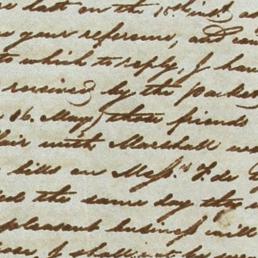 last on the 15th inst.
your reference, and
to which to reply, I have
received by the packet
16. May, these friends
with Marshall
bills on Mess.rs F. de
the same day the
pleasant business will
I shall